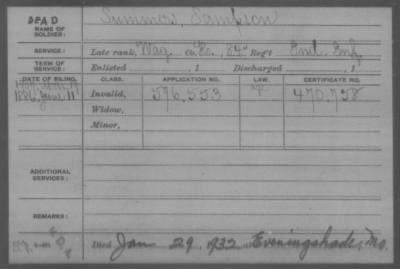 DEAD
NAME OF SOLDIER: Summers, Sampson
SERVICE: Late rank, Wag. Co. , 84" Reg't Ind. Inf.
TERM OF SERVICE: Enlisted , 1 Discharged , 1
DATE OF FILING. CLASS. APPLICATION NO. LAW. CERTIFICATE NO.
1886, June 11 Invalid, 576,553 470,758
Widow,
Minor,
ADDITIONAL SERVICES:
REMARKS:
Died Jan 29, 1932 at Eveningshade, Mo.